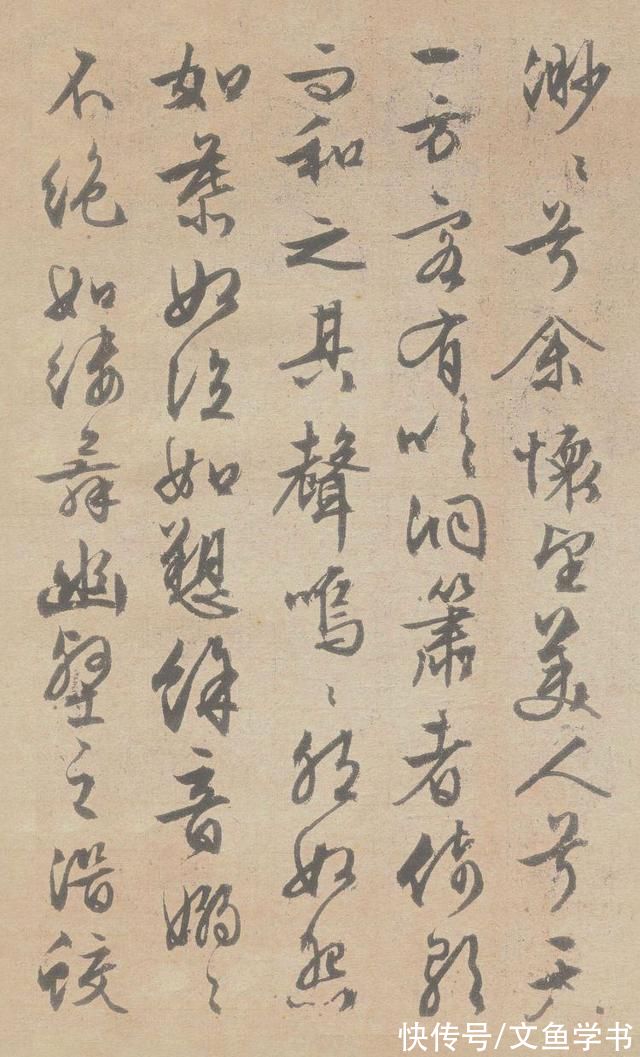 渺〻兮余懷望美人兮天
一方客有吹洞簫者倚歌
而和之其聲嗚〻然如怨
如慕如泣如愬餘音嫋〻
不絕如縷舞幽壑之潛蛟
快传号/文鱼学书